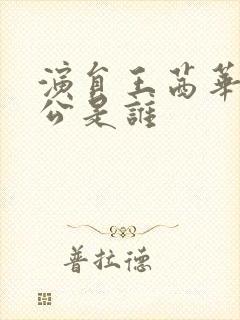 演員王茜華
公是誰
普拉德